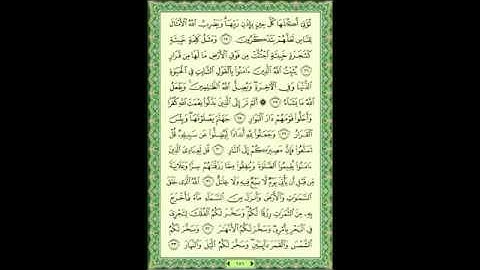 تُؤْتِي أُكُلَهَا كُلَّ حِينٍ بِإِذْنِ رَبِّهَا وَيَضْرِبُ اللَّهُ الْأَمْثَالَ
لِلنَّاسِ لَعَلَّهُمْ يَتَذَكَّرُونَ ٢٥ وَمَثَلُ كَلِمَةٍ خَبِيثَةٍ
كَشَجَرَةٍ خَبِيثَةٍ اجْتُثَّتْ مِن فَوْقِ الْأَرْضِ مَا لَهَا مِن قَرَارٍ
٢٦ يُثَبِّتُ اللَّهُ الَّذِينَ ءَامَنُوا بِالْقَوْلِ الثَّابِتِ فِي الْحَيَوٰةِ
الدُّنْيَا وَفِي الْءَاخِرَةِ وَيُضِلُّ اللَّهُ الظَّالِمِينَ وَيَفْعَلُ
اللَّهُ مَا يَشَاءُ ٢٧ ۞ أَلَمْ تَرَ إِلَى الَّذِينَ بَدَّلُوا نِعْمَتَ اللَّهِ كُفْرًا
وَأَحَلُّوا قَوْمَهُمْ دَارَ الْبَوَارِ ٢٨ جَهَنَّمَ يَصْلَوْنَهَا وَبِئْسَ
الْقَرَارُ ٢٩ وَجَعَلُوا لِلَّهِ أَندَادًا لِّيُضِلُّوا عَن سَبِيلِهِ قُلْ
تَمَتَّعُوا فَإِنَّ مَصِيرَكُمْ إِلَى النَّارِ ٣٠ قُل لِّعِبَادِيَ الَّذِينَ
ءَامَنُوا يُقِيمُوا الصَّلَوٰةَ وَيُنفِقُوا مِمَّا رَزَقْنَٰهُمْ سِرًّا وَعَلَانِيَةً
مِّن قَبْلِ أَن يَأْتِيَ يَوْمٌ لَّا بَيْعٌ فِيهِ وَلَا خِلَٰلٌ ٣١ اللَّهُ الَّذِي خَلَقَ
السَّمَٰوَٰتِ وَالْأَرْضَ وَأَنزَلَ مِنَ السَّمَاءِ مَاءً فَأَخْرَجَ
بِهِ مِنَ الثَّمَرَٰتِ رِزْقًا لَّكُمْ وَسَخَّرَ لَكُمُ الْفُلْكَ لِتَجْرِيَ
فِي الْبَحْرِ بِأَمْرِهِ وَسَخَّرَ لَكُمُ الْأَنْهَٰرَ ٣٢ وَسَخَّرَ لَكُمُ
الشَّمْسَ وَالْقَمَرَ دَائِبَيْنِ وَسَخَّرَ لَكُمُ الَّيْلَ وَالنَّهَارَ ٣٣